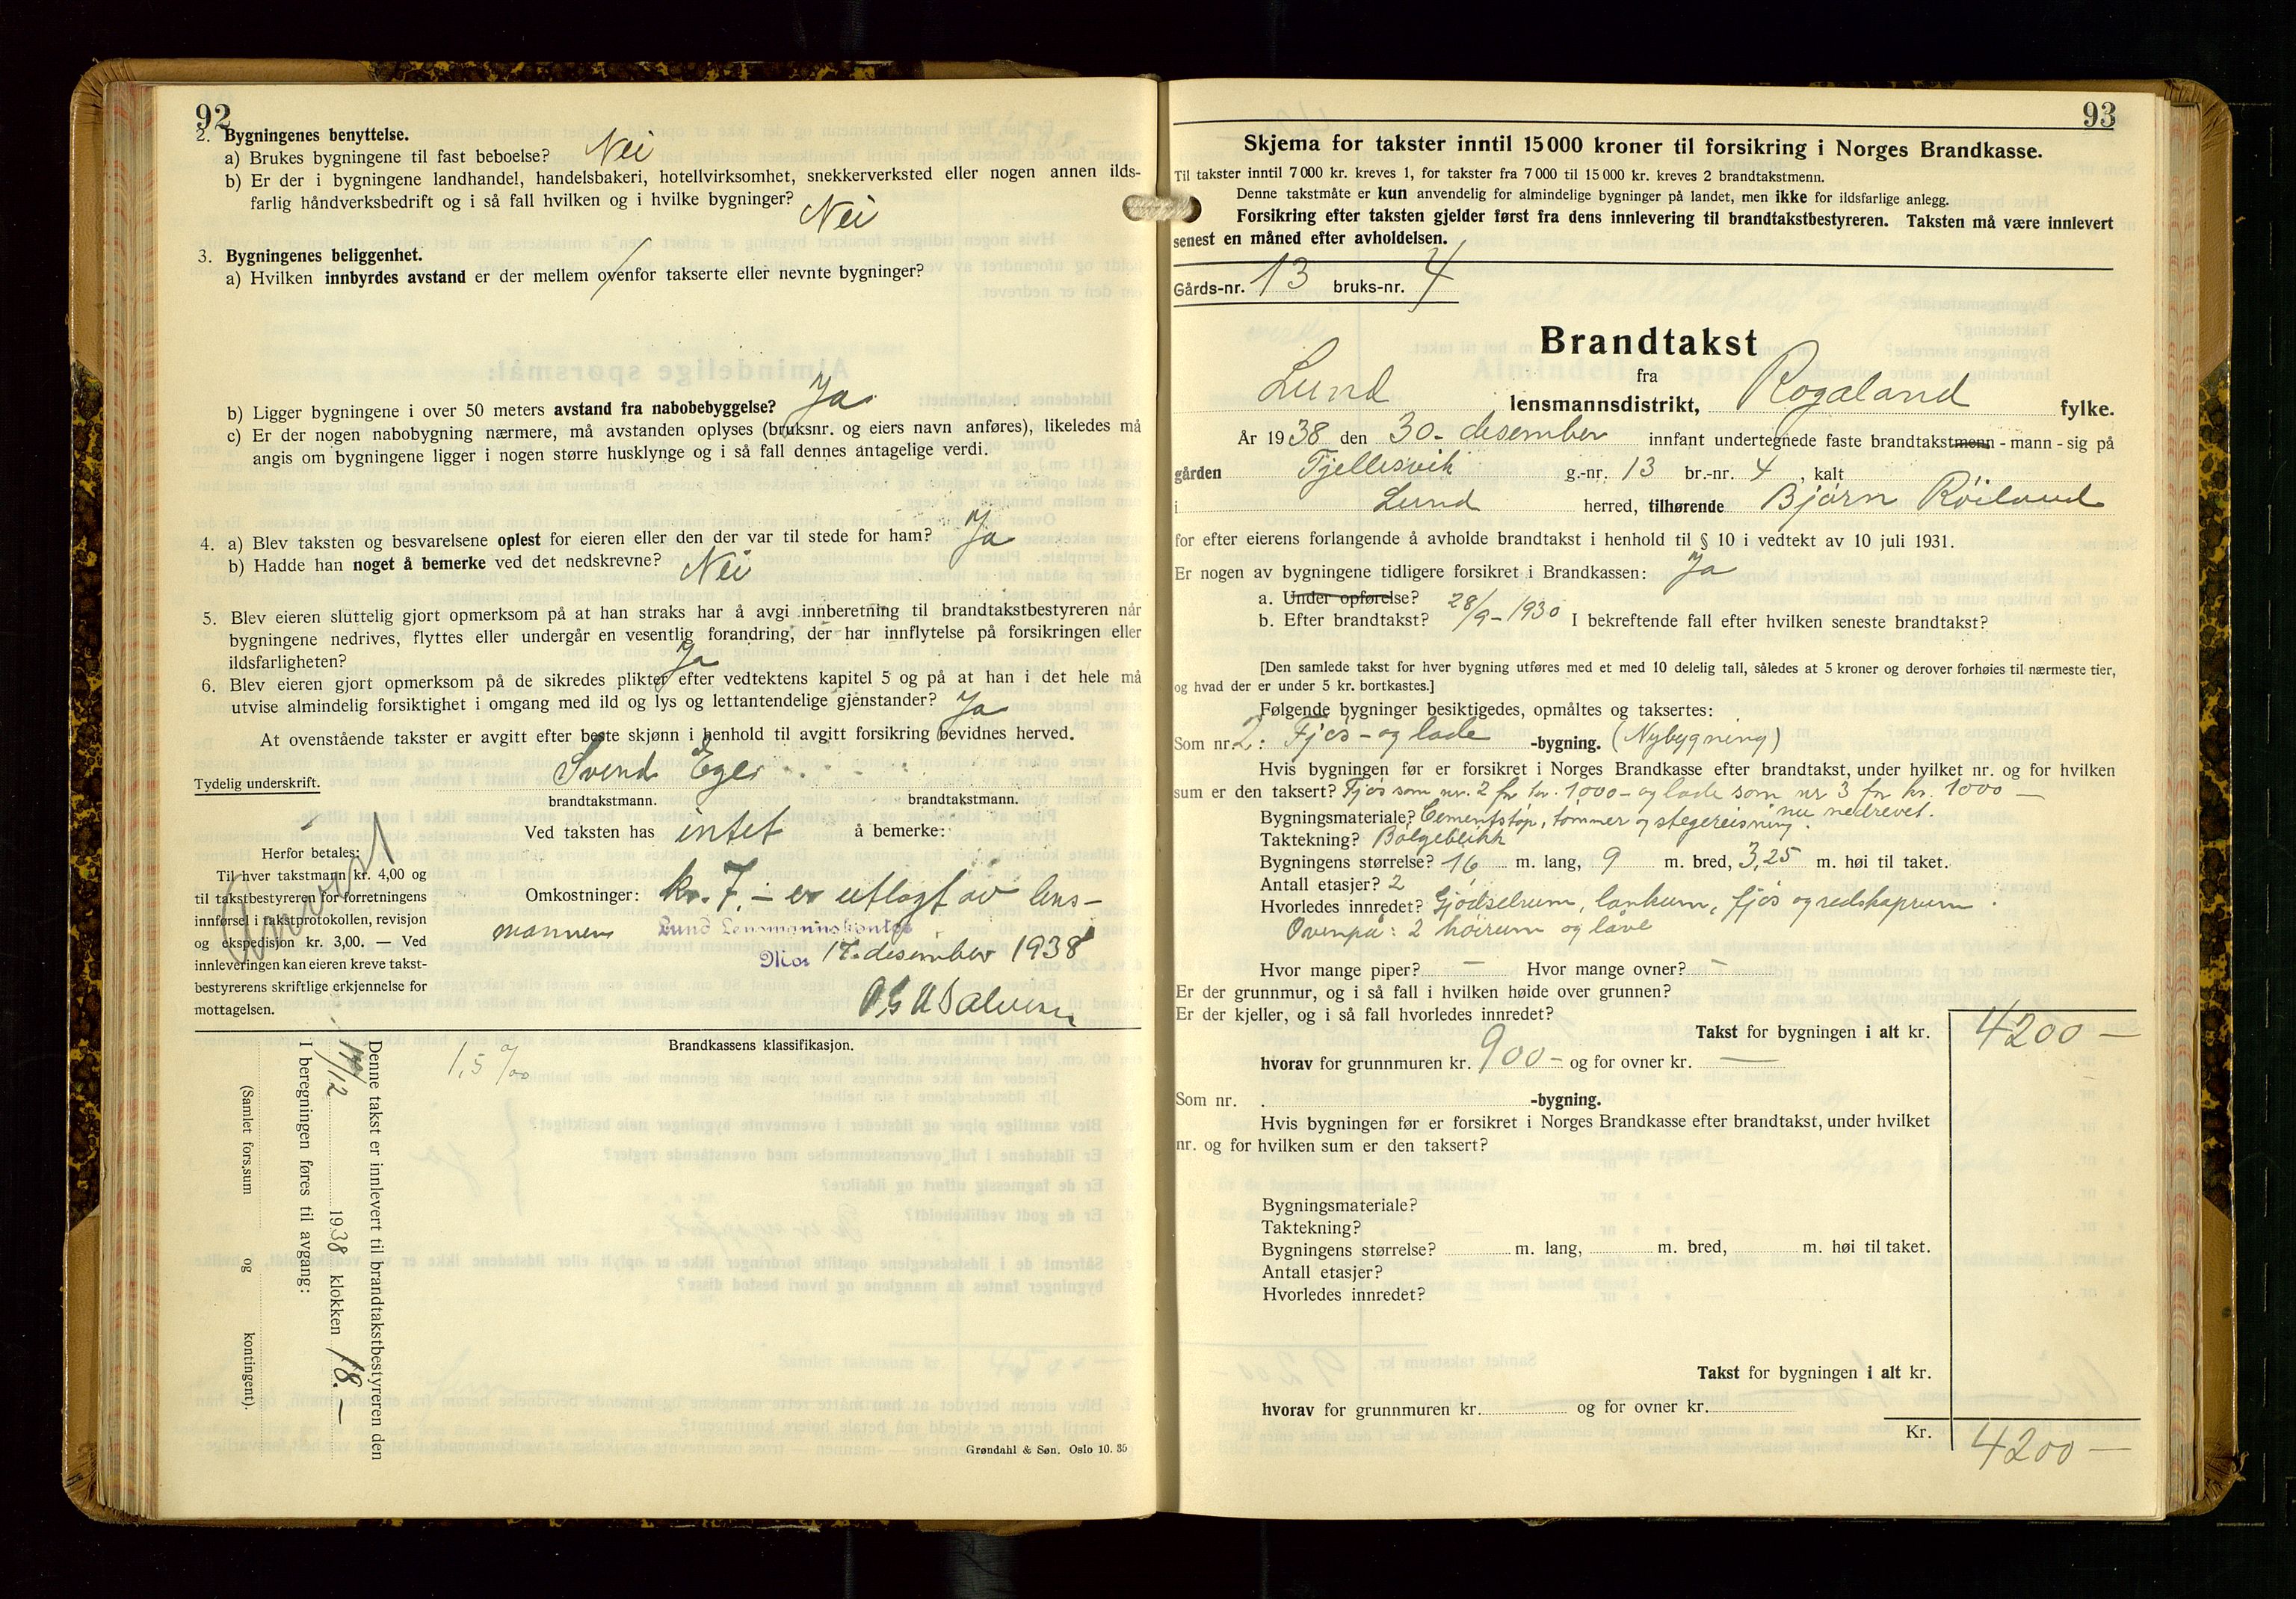 92
2. Bygningenes benyttelse.
a) Brukes bygningene til fast beboelse? Nei
b) Er der i bygningene landhandel, handelsbakeri, hotellvirksomhet, snekkerverksted eller nogen annen ilds-
farlig håndverksbedrift og i så fall hvilken og i hvilke bygninger? Nei
3. Bygningenes beliggenhet.
a) Hvilken innbyrdes avstand er der mellem ovenfor takserte eller nevnte bygninger?
b) Ligger bygningene i over 50 meters avstand fra nabobebyggelse? Ja
c) Er der nogen nabobygning nærmere, må avstanden oplyses (bruksnr. og eiers navn anføres), likeledes må
angis om bygningene ligger i nogen større husklynge og i så fall dennes antagelige verdi.
4. a) Blev taksten og besvarelsene oplest for eieren eller den der var til stede for ham? Ja
b) Hadde han noget å bemerke ved det nedskrevne? Nei
5. Blev eieren sluttelig gjort opmerksom på at han straks har å avgi innberetning til brandtakstbestyreren når
bygningene nedrives, flyttes eller undergår en vesentlig forandring, der har innflytelse på forsikringen eller
ildsfarligheten? Ja
6. Blev eieren gjort opmerksom på de sikredes plikter efter vedtektens kapitel 5 og på at han i det hele må
utvise almindelig forsiktighet i omgang med ild og lys og lettantendelige gjenstander? Ja
At ovenstående takster er avgitt efter beste skjønn i henhold til avgitt forsikring bevidnes herved.
Tydelig underskrift. Svend Eger
brandtakstmann. brandtakstmann.
Ved taksten has intet å bemerke:
Herfor betales:
Til hver takstmann kr. 4,00 og
til takstbestyreren for forretningens
innførsel i takstprotokollen, revisjon
og ekspedisjon kr. 3,00. — Ved
innleveringen kan eieren kreve takst-
bestyrerens skriftlige erkjennelse for
mottagelsen.
Omkostninger: kr. 7.- er utlagt av lens-
mannen Lund Lensmannskontor
Moi 17. desember 1938
Brandkassens klassifikasjon.
1,5 ‰
Denne takst er innlevert til brandtakstbestyreren den
/12 1938 klokken 18.-
I beregningen føres til avgang:
(Samlet fors.sum og kontingent).
Grøndahl & Søn. Oslo 10. 35
93
Skjema for takster inntil 15000 kroner til forsikring i Norges Brandkasse.
Til takster inntil 7000 kr. kreves 1, for takster fra 7000 til 15000 kr. kreves 2 brandtakstmenn.
Denne takstmåte er kun anvendelig for almindelige bygninger på landet, men ikke for ildsfarlige anlegg.
Forsikring efter taksten gjelder først fra dens innlevering til brandtakstbestyreren. Taksten må være innlevert
senest en måned efter avholdelsen.
Gårds-nr. 13 bruks-nr. 4
Brandtakst
fra
Lund lensmannsdistrikt, Rogaland fylke.
År 1938 den 30. desember innfant undertegnede faste brandtakstmenn - mann - sig på
gården Tjellesvik g.-nr. 13 br.-nr. 4, kalt
i Lund herred, tilhørende Bjørn Røiland
for efter eierens forlangende å avholde brandtakst i henhold til § 10 i vedtekt av 10 juli 1931.
Er nogen av bygningene tidligere forsikret i Brandkassen: Ja
a. Under opførelse?
b. Efter brandtakst? 28/9-1930 I bekreftende fall efter hvilken seneste brandtakst?
[Den samlede takst for hver bygning utføres med et med 10 delelig tall, således at 5 kroner og derover forhøies til nærmeste tier,
og hvad der er under 5 kr. bortkastes.]
Følgende bygninger besiktigedes, opmåltes og taksertes:
Som nr. 2: Fjøs- og lade -bygning. (Nybygning)
Hvis bygningen før er forsikret i Norges Brandkasse efter brandtakst, under hvilket nr. og for hvilken
sum er den taksert? Fjøs som nr. 2 for kr. 1000- og lade som nr 3 for kr. 1000 —
nu nedrevet.
Bygningsmateriale? Cementstøp, tømmer og stegereisning.
Taktekning? Bølgeblikk
Bygningens størrelse? 16 m. lang, 9 m. bred, 3,25 m. høi til taket.
Antall etasjer? 2
Hvorledes innredet? Gjødselrum, lankum, fjøs og redskaprum.
Ovenpå: 2 høirum og låve
Hvor mange piper? — Hvor mange ovner? —
Er der grunnmur, og i så fall i hvilken høide over grunnen?
Er der kjeller, og i så fall hvorledes innredet?
Takst for bygningen i alt kr. 4200 —
hvorav for grunnmuren kr. 900- og for ovner kr. —
Som nr. -bygning.
Hvis bygningen før er forsikret i Norges Brandkasse efter brandtakst, under hvilket
nr. og for hvilken sum er den taksert?
Bygningsmateriale?
Taktekning?
Bygningens størrelse? m. lang, m. bred, m. høi til taket.
Antall etasjer?
Hvorledes innredet?
Takst for bygningen i alt kr.
hvorav for grunnmuren kr. og for ovner kr.
Kr. 4200 —